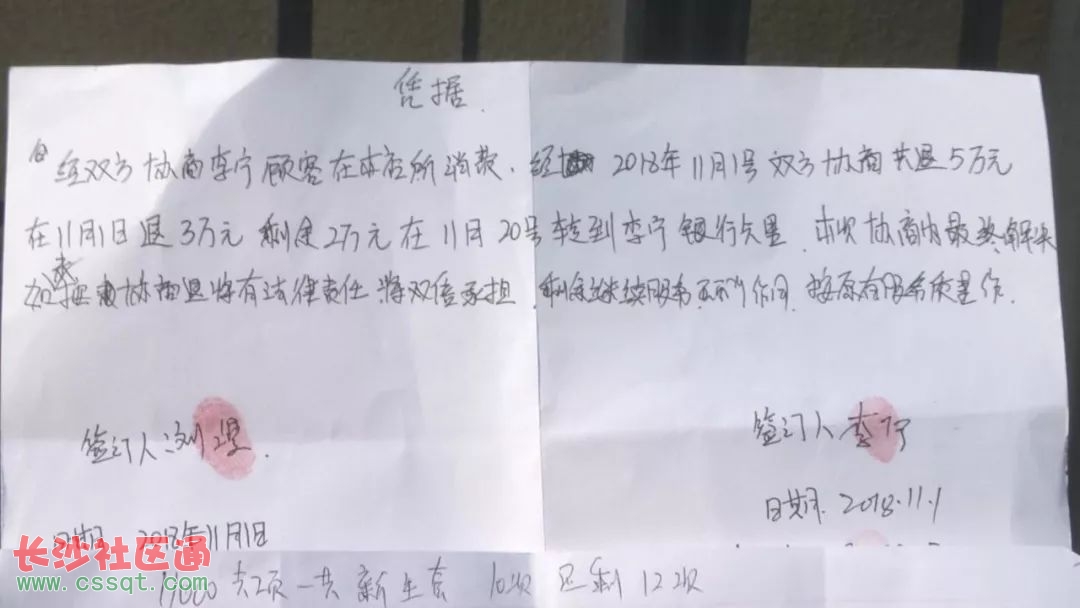 凭据.
经双方协商李宁顾客在本店所消费. 经 2018年11月1号双方协商共退5万元
在11月1日退3万元 剩余2万元在11月20号转到李宁银行卡里. 本次协商为最终解决
如未按协商退将有法律责任将双倍承担. 剩余继续服务 按原有服务质量作.
签订人 刘
签订人李宁
日期. 2018.11.1
日期 2018年11月1日
共2项一共 新生套 10次 已剩12次
长沙社区通
www.cssqt.com